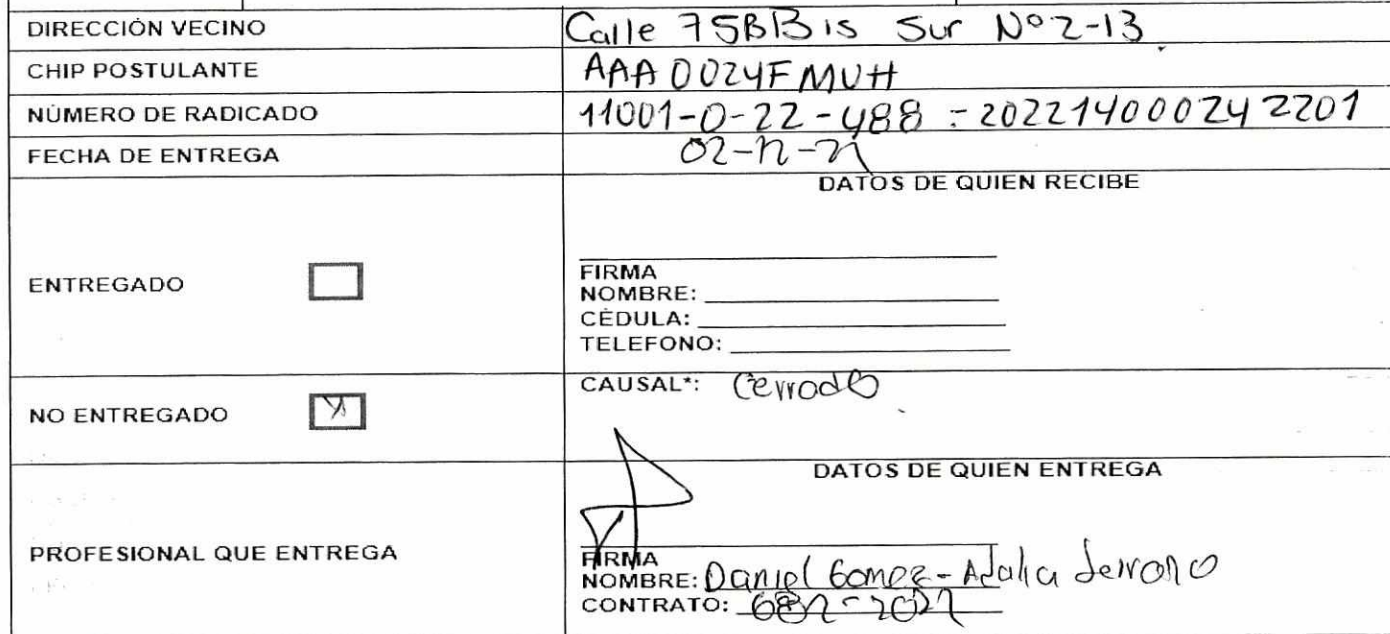 DIRECCIÓN VECINO Calle 75BBis Sur Nº 2-13
CHIP POSTULANTE AAA0024FMUH
NÚMERO DE RADICADO 11001-0-22-488 - 202214000242201
FECHA DE ENTREGA
DATOS DE QUIEN RECIBE
ENTREGADO
FIRMA
NOMBRE:
CÉDULA:
TELEFONO:
NO ENTREGADO X
CAUSAL*: Cerrado
DATOS DE QUIEN ENTREGA
PROFESIONAL QUE ENTREGA
FIRMA
NOMBRE: Daniel Gomez - Adalia Serrano
CONTRATO: